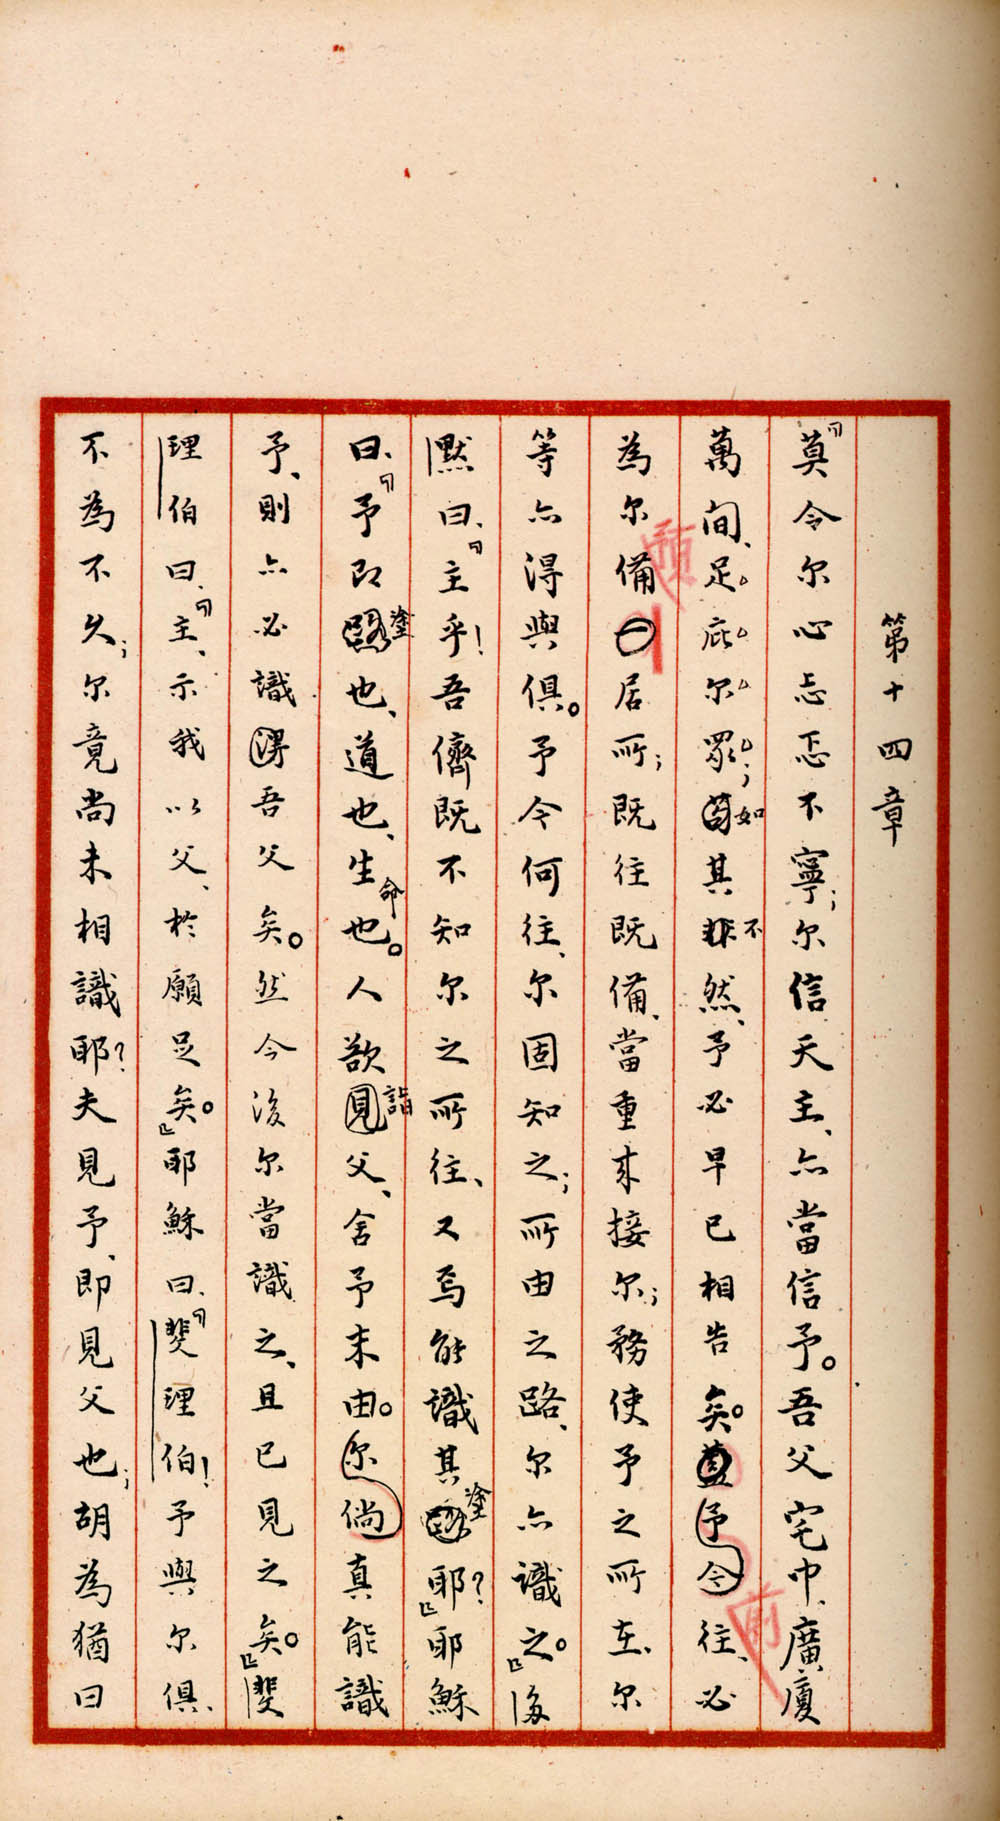 第十四章
『莫令尔心忐忑不寧;尔信天主、亦當信予。吾父宅中、廣廈
萬間、足庇尔眾;茍如其非不然、予必早已相告矣。蓋予今前往、必
為尔預備一居所;既往既備、當重來接尔;務使予之所在、尔
等亦得與俱。予今何往、尔固知之;所由之路、尔亦識之。』多
默曰、『主乎!吾儕既不知尔之所往、又焉能識其路塗耶?』耶穌
曰、『予即路塗也、道也、生命也。人欲見詣父、舍予末由。尔倘真能識
予、則亦必識得吾父矣。然今後尔當識之、且已見之矣。』斐
理伯曰、『主、示我以父、於願足矣。』耶穌曰、『斐理伯!予與尔俱、
不為不久;尔竟尚未相識耶?夫見予、即見父也;胡為猶曰